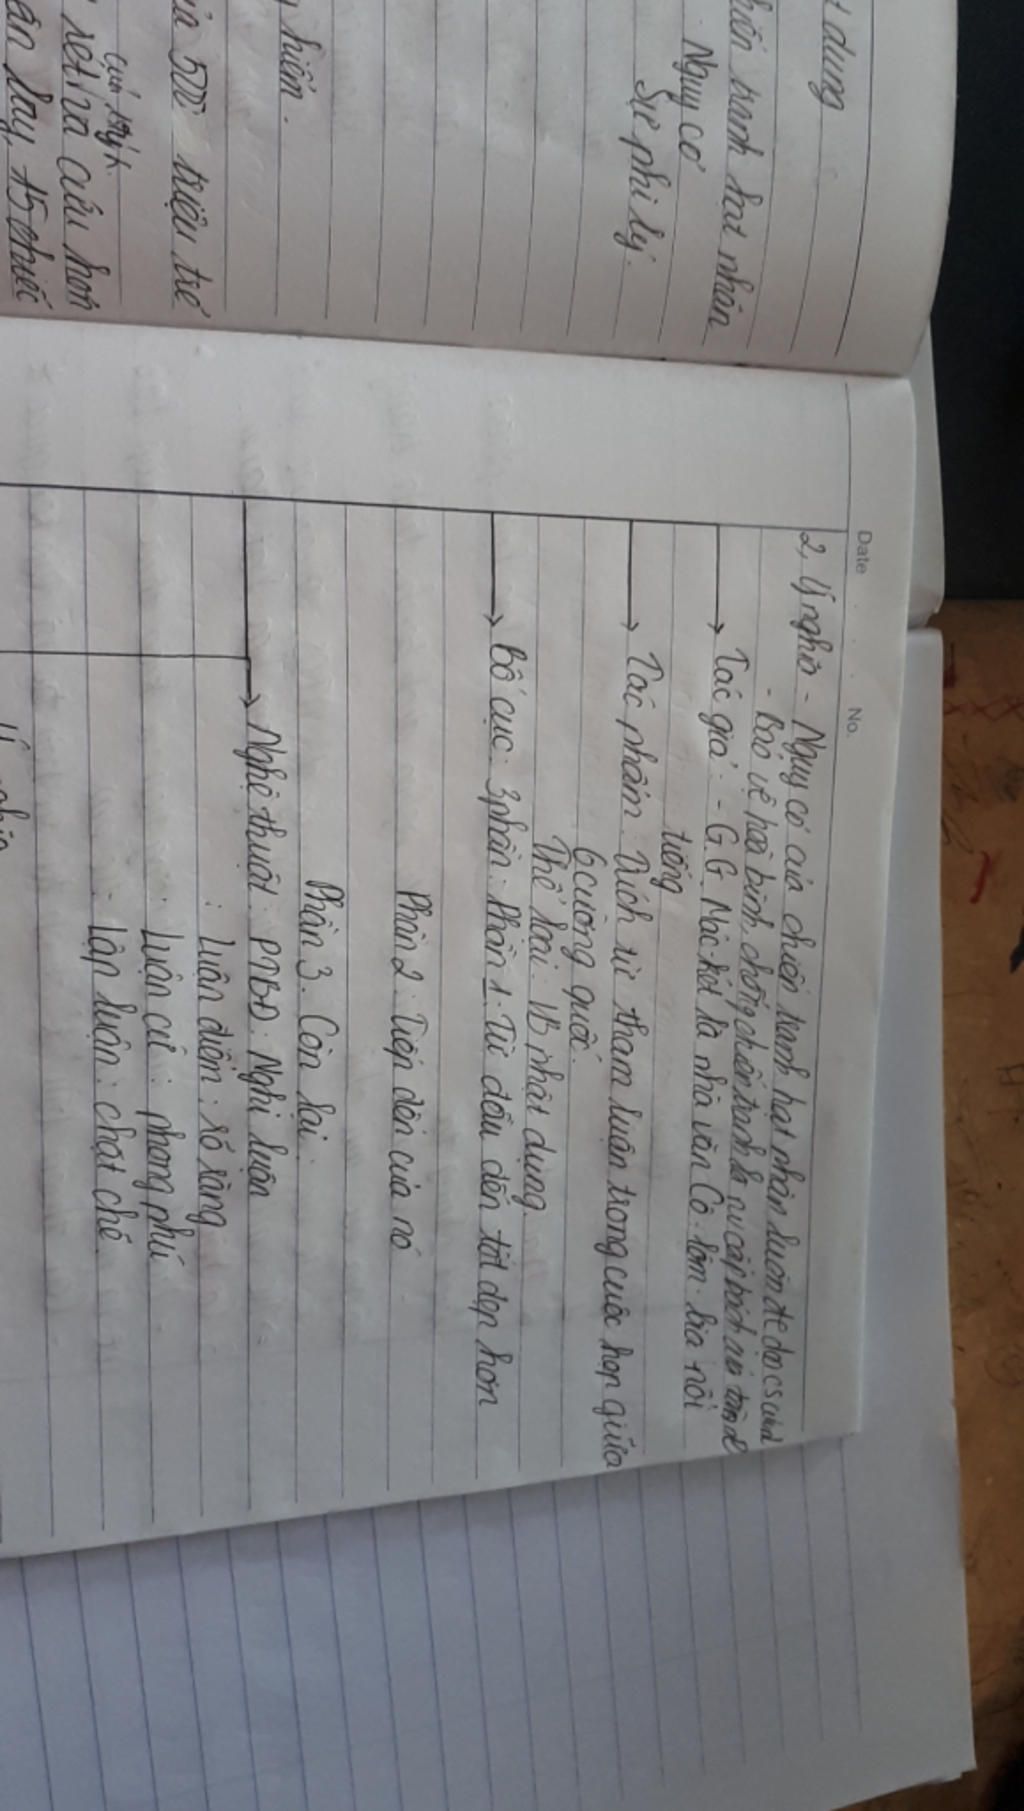 t dung
hiến tranh hạt nhân
. Nguy cơ
Sự phi lý.
hiểm.
500 triệu trẻ
rét hơn
15 chiếc
Date No.
2, Ý nghĩa - Nguy cơ của chiến tranh hạt nhân luôn đe dọa
- Bảo vệ hoà bình, chống chiến tranh là
Tác giả: - G.G. Mác-két là nhà văn Cô-lôm-bia nổi
tiếng
Tác phẩm: Trích từ tham luận trong cuộc họp giữa
6 cường quốc.
Thể loại: VB nhật dụng.
Bố cục: 3 phần: Phần 1: Từ đầu đến tốt đẹp hơn
Phần 2: Tiếp đến của nó
Phần 3: Còn lại.
Nghệ thuật: PTBĐ: Nghị luận
: Luận điểm: rõ ràng
: Luận cứ: phong phú
- Lập luận: chặt chẽ